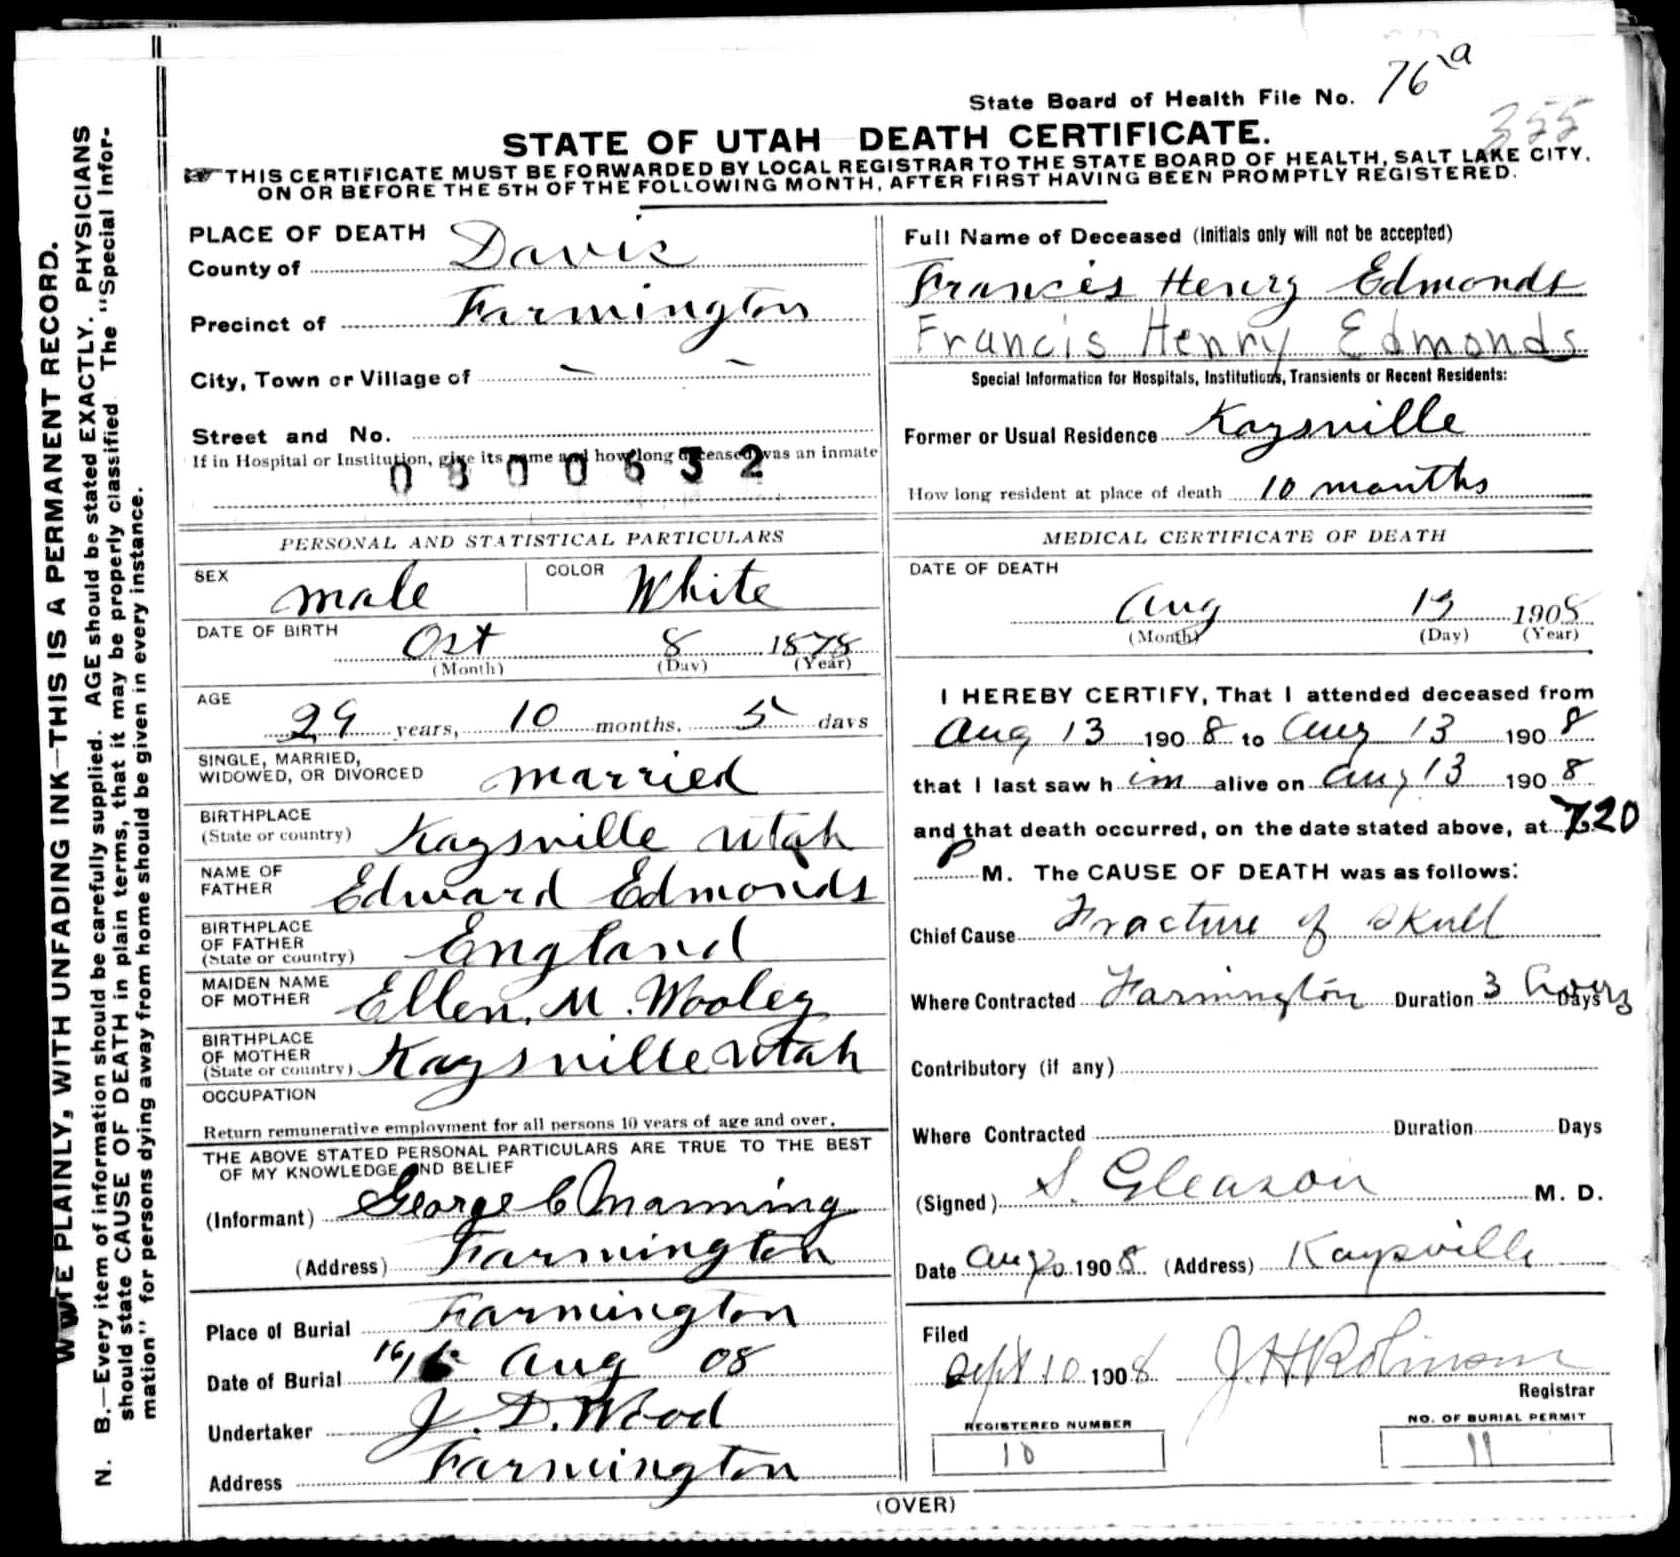 State Board of Health File No. 76 a
355
STATE OF UTAH DEATH CERTIFICATE.
THIS CERTIFICATE MUST BE FORWARDED BY LOCAL REGISTRAR TO THE STATE BOARD OF HEALTH, SALT LAKE CITY,
ON OR BEFORE THE 5TH OF THE FOLLOWING MONTH, AFTER FIRST HAVING BEEN PROMPTLY REGISTERED.
WRITE PLAINLY, WITH UNFADING INK—THIS IS A PERMANENT RECORD.
N. B.—Every item of information should be carefully supplied. AGE should be stated EXACTLY. PHYSICIANS
should state CAUSE OF DEATH in plain terms, that it may be properly classified. The "Special Infor-
mation" for persons dying away from home should be given in every instance.
PLACE OF DEATH
County of Davis
Precinct of Farmington
City, Town or Village of — —
Street and No.
If in Hospital or Institution, give its name and how long deceased was an inmate
0800632
PERSONAL AND STATISTICAL PARTICULARS
SEX male COLOR White
DATE OF BIRTH
Oct 8 1878
(Month) (Day) (Year)
AGE
29 years, 10 months, 5 days
SINGLE, MARRIED,
WIDOWED, OR DIVORCED married
BIRTHPLACE
(State or country) Kaysville Utah
NAME OF
FATHER Edward Edmonds
BIRTHPLACE
OF FATHER
(State or country) England
MAIDEN NAME
OF MOTHER Ellen. M. Wooley
BIRTHPLACE
OF MOTHER
(State or country) Kaysville Utah
OCCUPATION
Return remunerative employment for all persons 10 years of age and over.
THE ABOVE STATED PERSONAL PARTICULARS ARE TRUE TO THE BEST
OF MY KNOWLEDGE AND BELIEF
(Informant) George C Manning
(Address) Farmington
Place of Burial Farmington
Date of Burial 16/ Aug 08
Undertaker J. D. Wood
Address Farmington
Full Name of Deceased (Initials only will not be accepted)
Francis Henry Edmonds
Francis Henry Edmonds
Special Information for Hospitals, Institutions, Transients or Recent Residents:
Former or Usual Residence Kaysville
How long resident at place of death 10 months
MEDICAL CERTIFICATE OF DEATH
DATE OF DEATH
Aug 13 1908
(Month) (Day) (Year)
I HEREBY CERTIFY, That I attended deceased from
Aug 13 1908 to Aug 13 1908
that I last saw him alive on Aug 13 1908
and that death occurred, on the date stated above, at 7.20
P M. The CAUSE OF DEATH was as follows:
Chief Cause Fracture of Skull
Where Contracted Farmington Duration 3 hours Days
Contributory (if any)
Where Contracted Duration Days
(Signed) S. Gleason M. D.
Date Aug 20 1908 (Address) Kaysville
Filed
Sept 10 1908 J. H. Robinson
Registrar
REGISTERED NUMBER
10
NO. OF BURIAL PERMIT
11
(OVER)